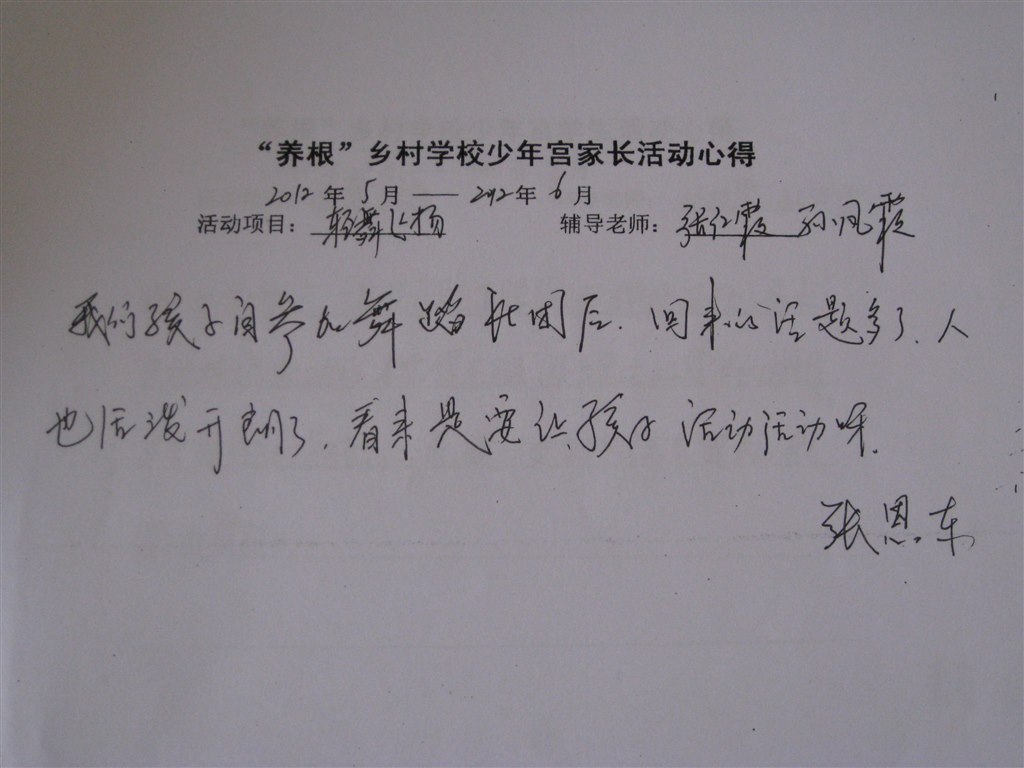 “养根”乡村学校少年宫家长活动心得
2012年5月——2012年6月
活动项目：轻舞飞扬 辅导老师：张红霞 孙凤霞
我们孩子自参加舞蹈社团后，回来的话题多了，人
也活泼开朗了，看来是要让孩子活动活动呀。
张恩东